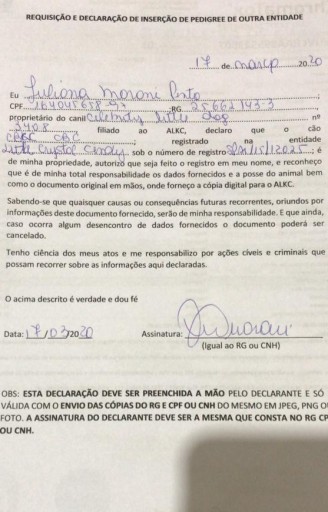 REQUISIÇÃO E DECLARAÇÃO DE INSERÇÃO DE PEDIGREE DE OUTRA ENTIDADE
17 de março 2020
Eu Juliana Moroni Pinto
CPF RG 25662143-3
proprietário do canil Little Dog nº
3408 filiado ao ALKC, declaro que o cão
registrado na entidade
CBKC CBC
Little Crystol Cindy sob o número de registro é
de minha propriedade, autorizo que seja feito o registro em meu nome, e reconheço
que é de minha total responsabilidade os dados fornecidos e a posse do animal bem
como o documental original em mãos, onde forneço a cópia digital para o ALKC.
Sabendo-se que quaisquer causas ou consequências futuras recorrentes, oriundos por
informações deste documento fornecido, serão de minha responsabilidade. E que ainda,
caso ocorra algum desencontro de dados fornecidos o documento poderá ser
cancelado.
Tenho ciência dos meus atos e me responsabilizo por ações cíveis e criminais que
possam recorrer sobre as informações aqui declaradas.
O acima descrito é verdade e dou fé
Data: 17/03/2020 Assinatura:
(Igual ao RG ou CNH)
OBS: ESTA DECLARAÇÃO DEVE SER PREENCHIDA A MÃO PELO DECLARANTE E SÓ
VÁLIDA COM O ENVIO DAS CÓPIAS DO RG E CPF OU CNH DO MESMO EM JPEG, PNG OU
FOTO. A ASSINATURA DO DECLARANTE DEVE SER A MESMA QUE CONSTA NO RG CP
OU CNH.